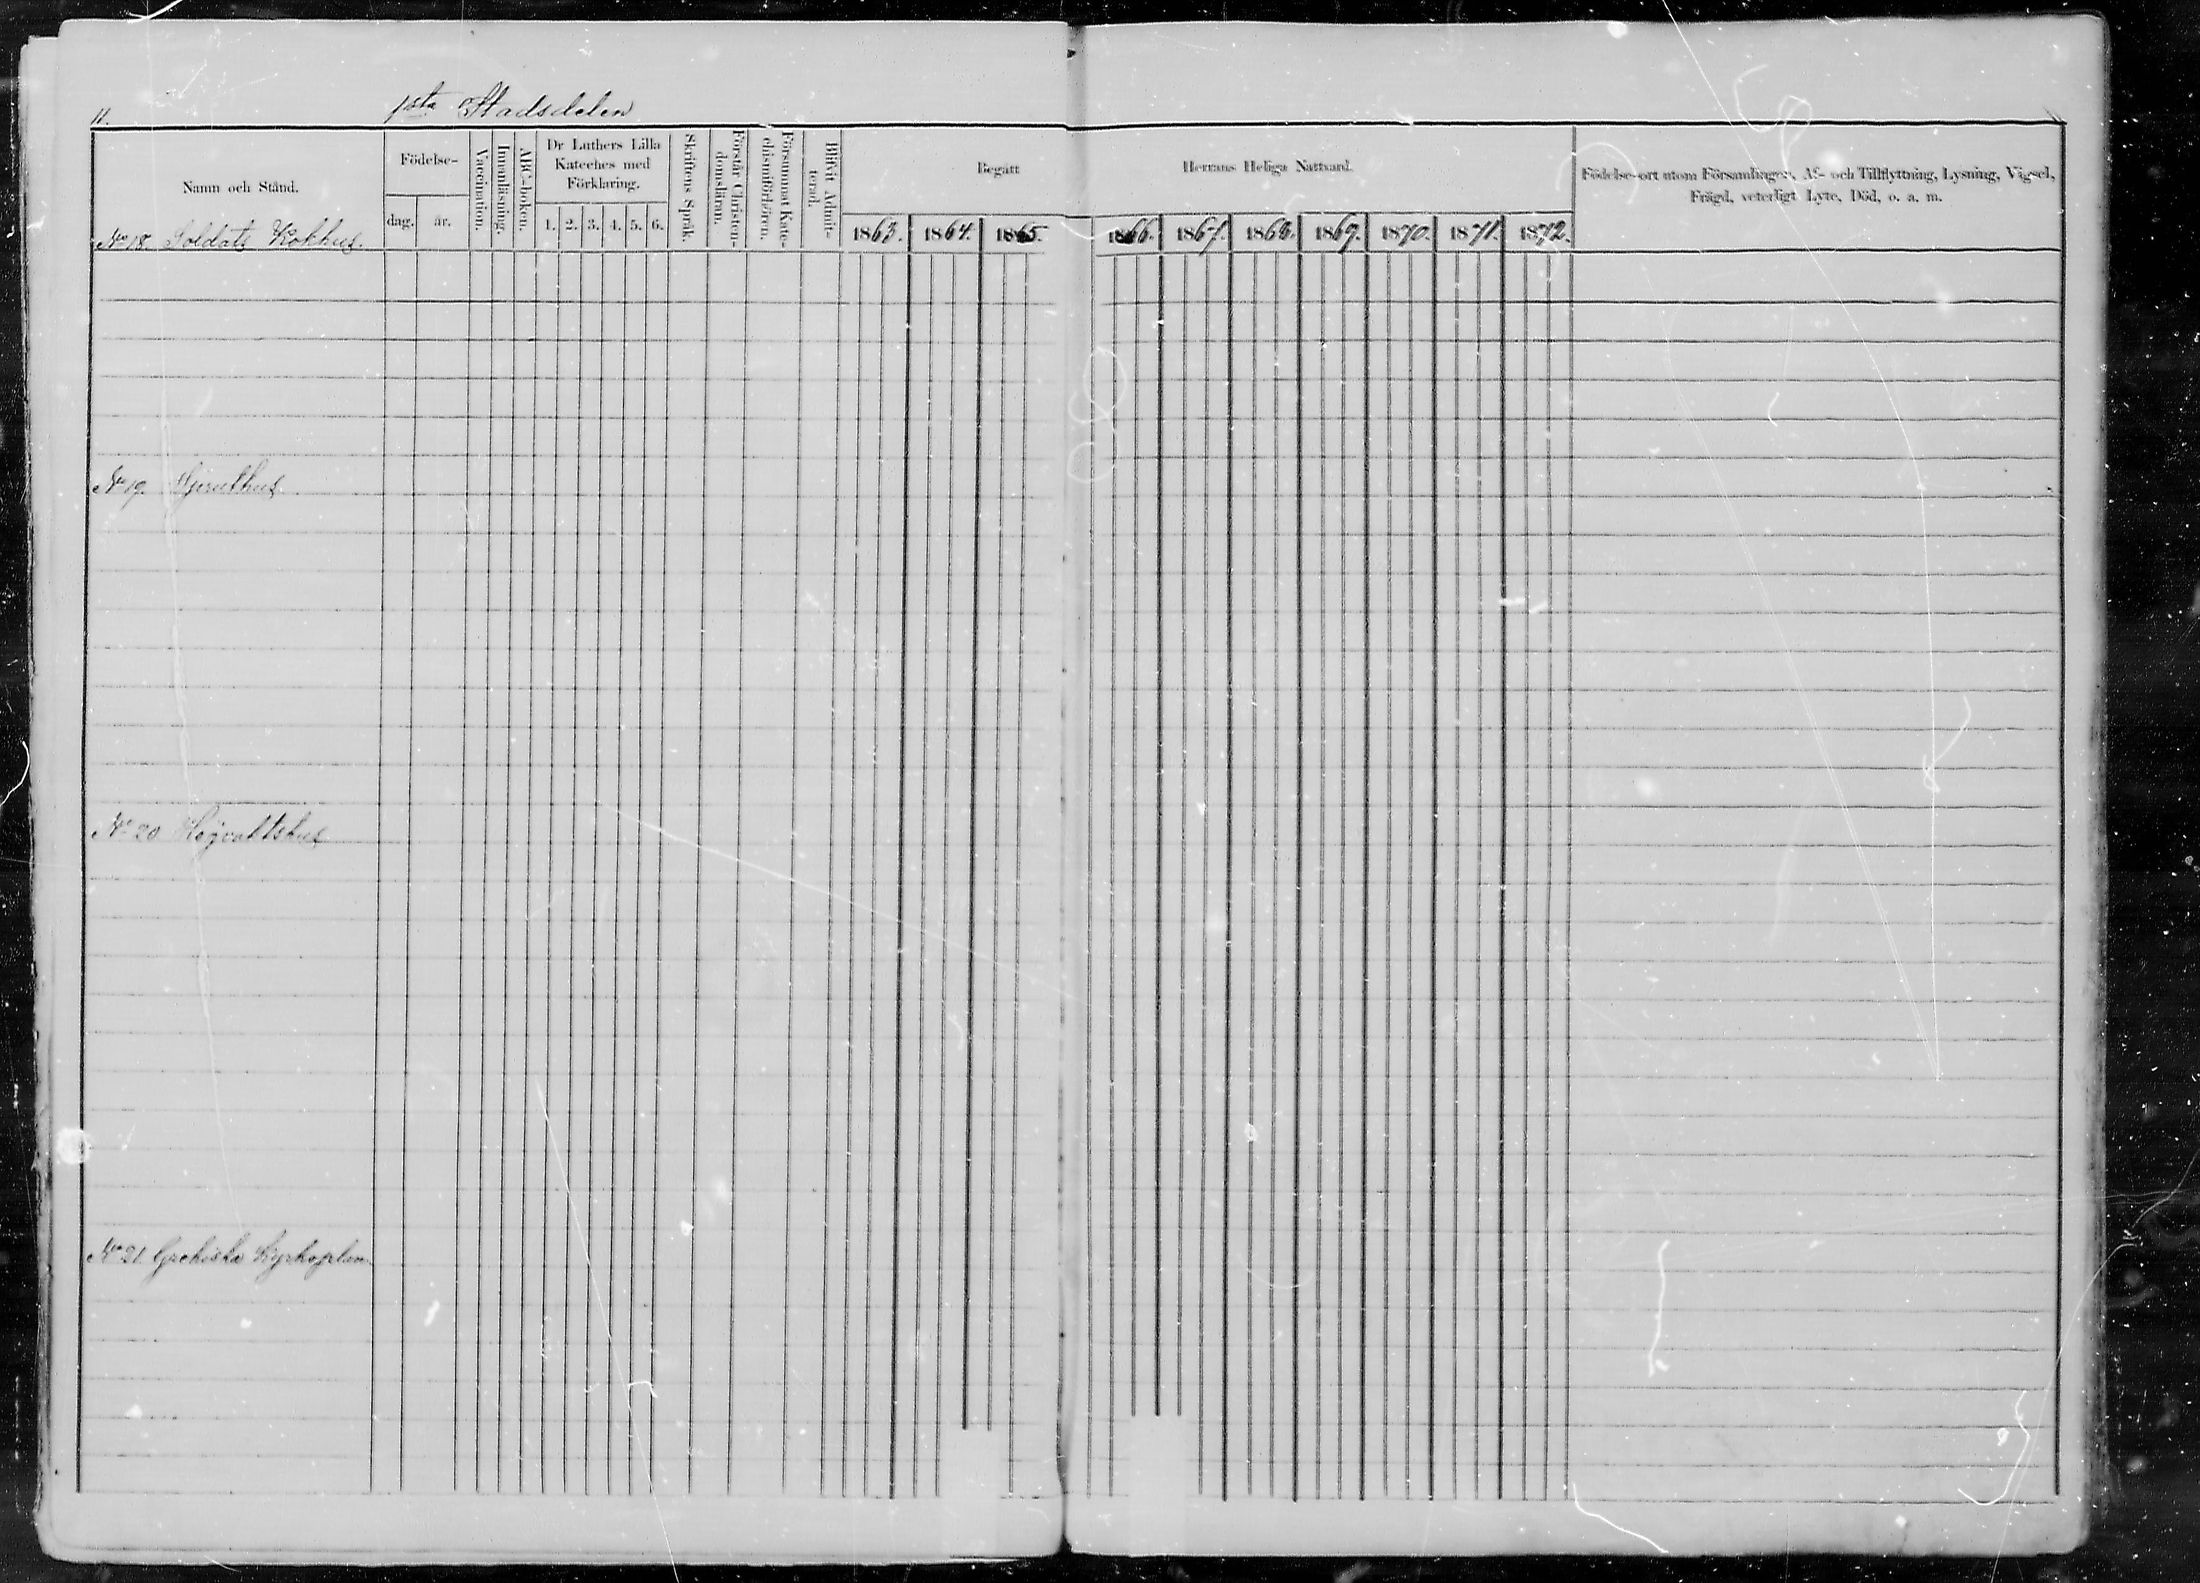 11.
1sta Stadsdelen
Namn och Stånd.
Födelse-
dag.
år.
Vaccination.
Innanläsning.
ABC-boken.
Dr Luthers Lilla
Kateches med
Förklaring.
1. 2. 3. 4. 5. 6.
Skriftens Språk.
Förstår Christen-
domsläran.
Försummat Kate-
chismiförhören.
Blifvit Admit-
terad.
Begått
Herrans Heliga Nattvard.
1863. 1864. 1865. 1866. 1867. 1868. 1869. 1870. 1871. 1872.
Födelse-ort utom Församlingen, Af- och Tillflyttning, Lysning, Vigsel,
Frägd, veterligt Lyte, Död, o. a. m.
No 18. Soldats Kokhus.
No 19.
No 20 Högvaktshus
No 21. Grekiska Kyrkoplan.